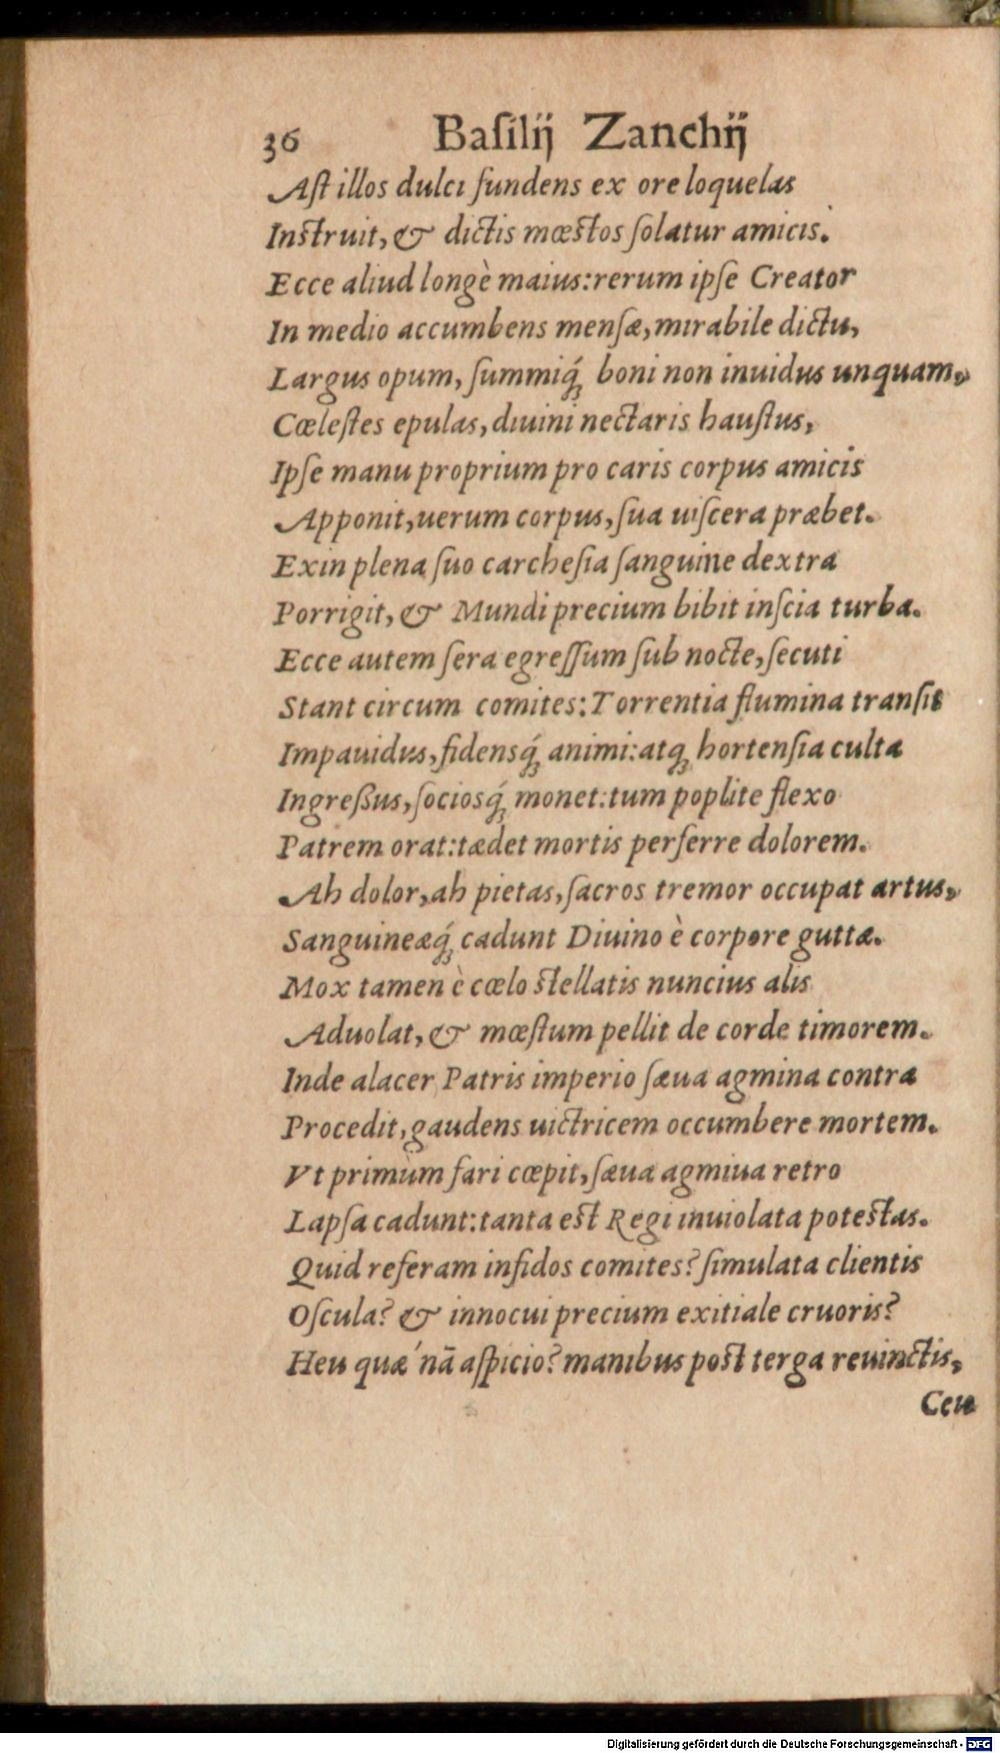 36 Baſilij Zanchij
Aſt illos dulci fundens ex ore loquelas
Inſtruit, & dictis mœſtos ſolatur amicis.
Ecce aliud longè maius: rerum ipſe Creator
In medio accumbens menſæ, mirabile dictu,
Largus opum, ſummiq́; boni non inuidus unquam,
Cœleſtes epulas, diuini nectaris hauſtus,
Ipſe manu proprium pro caris corpus amicis
Apponit, uerum corpus, ſua uiſcera præbet.
Exin plena ſuo carcheſia ſanguine dextra
Porrigit, & Mundi precium bibit inſcia turba.
Ecce autem ſera egreſſum ſub nocte, ſecuti
Stant circum comites: Torrentia flumina tranſit
Impauidus, fidensq́; animi: atq; hortenſia culta
Ingreßus, ſociosq́; monet: tum poplite flexo
Patrem orat: tædet mortis perferre dolorem.
Ah dolor, ah pietas, ſacros tremor occupat artus,
Sanguineæq́; cadunt Diuino è corpore guttæ.
Mox tamen è cœlo ſtellatis nuncius alis
Aduolat, & mœſtum pellit de corde timorem.
Inde alacer Patris imperio ſæua agmina contra
Procedit, gaudens uictricem occumbere mortem.
Vt primùm fari cœpit, ſæua agmiua retro
Lapſa cadunt: tanta eſt Regi inuiolata poteſtas.
Quid referam infidos comites? ſimulata clientis
Oſcula? & innocui precium exitiale cruoris?
Heu quæ´nā aſpicio? manibus poſt terga reuinctis,
Ceu
Digitalisierung gefördert durch die Deutsche Forschungsgemeinschaft - DFG